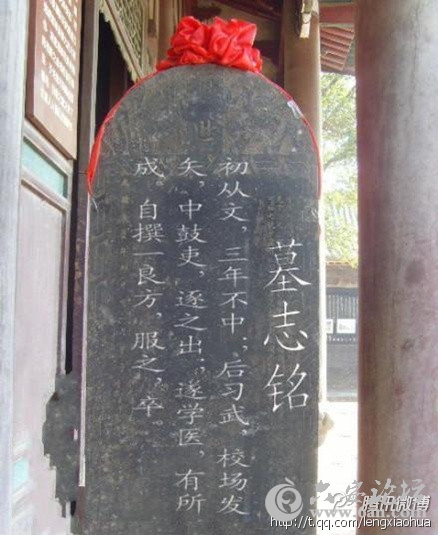 墓志铭
初从文，三年不中；后习武，校场发
矢，中鼓吏，逐之出；遂学医，有所
成。自撰一良方，服之，卒。
腾讯微博
http://t.qq.com/lengxiaohua